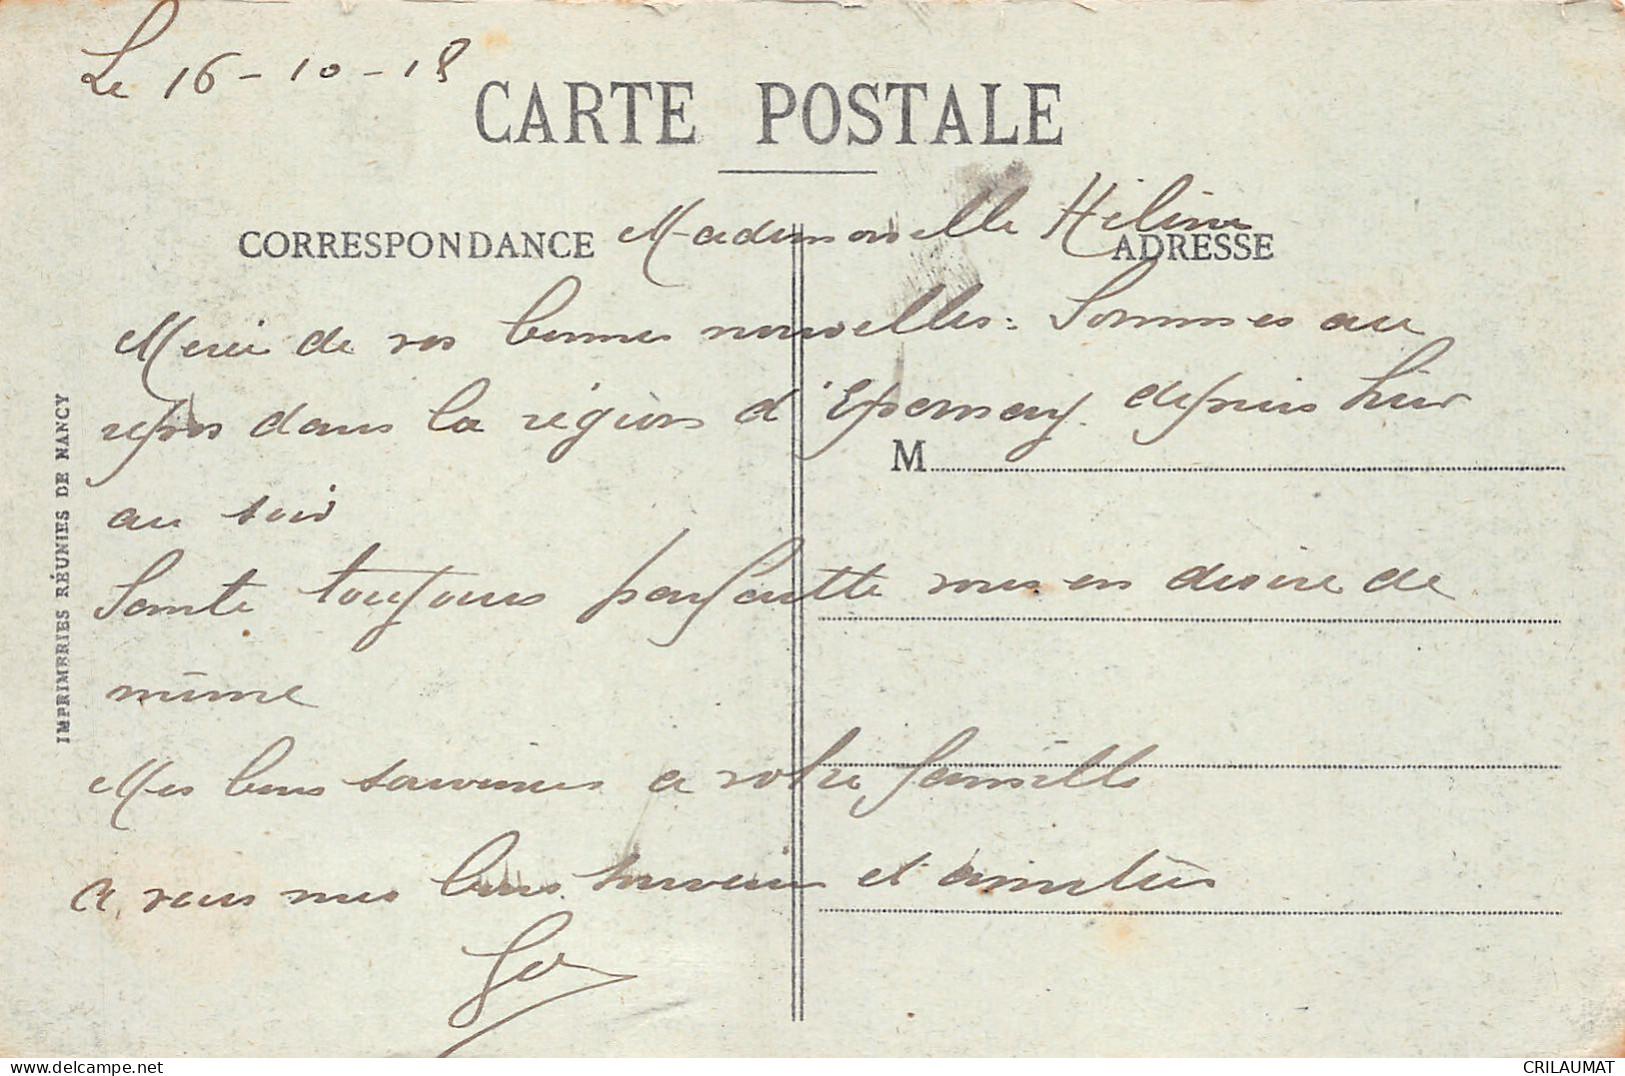 Le 16-10-18
CARTE POSTALE
Mademoiselle Hélène
CORRESPONDANCE
ADRESSE
Merci de vos bonnes nouvelles: Sommes au
repos dans la région d'Epernay depuis hier
M
au soir
Santé toujours parfaitte vous en desire de
même
Mes bons souvenirs a votre famille
A vous mes bons souvenirs et amitiés
IMPRIMERIES RÉUNIES DE NANCY
delcampe.net
CRILAUMAT